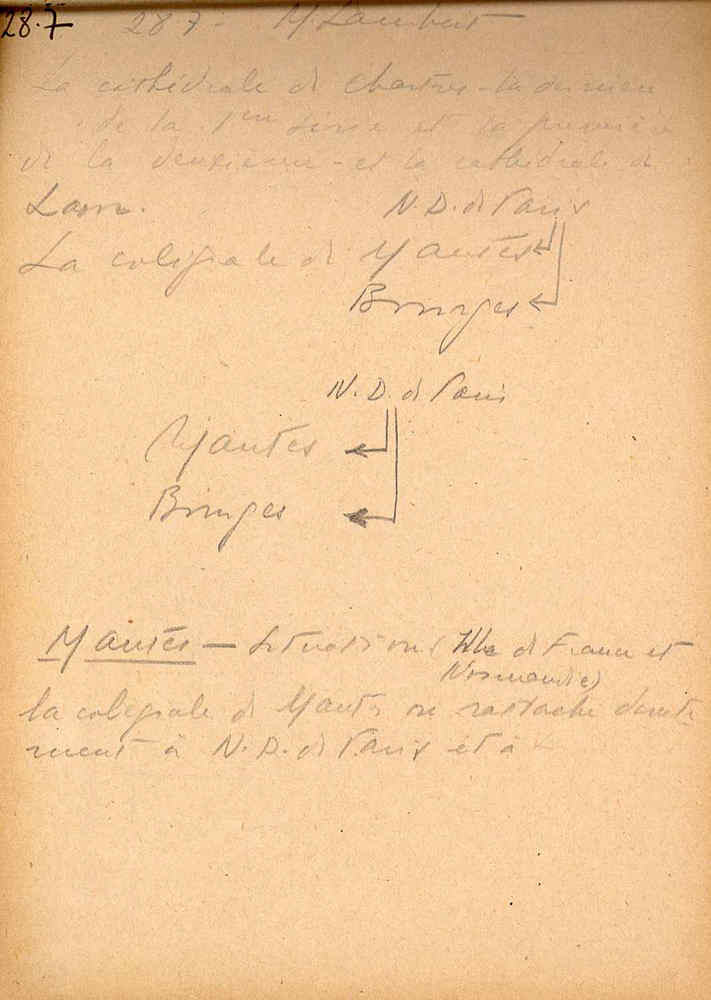 28.7 28 7 - M. Lambert
La cathédrale de Chartres - la derniere
de la 1ère serie et la premiere
de la deuxieme - et la cathédrale de
Laon. N. D. de Paris
La colegiale de Mantes
Bourges
N. D. de Paris
Mantes
Bourges
Mantes - Situation (Ille de France et
Normandie)
la colegiale de Mantes se rastache directe
ment à N. D. de Paris et à